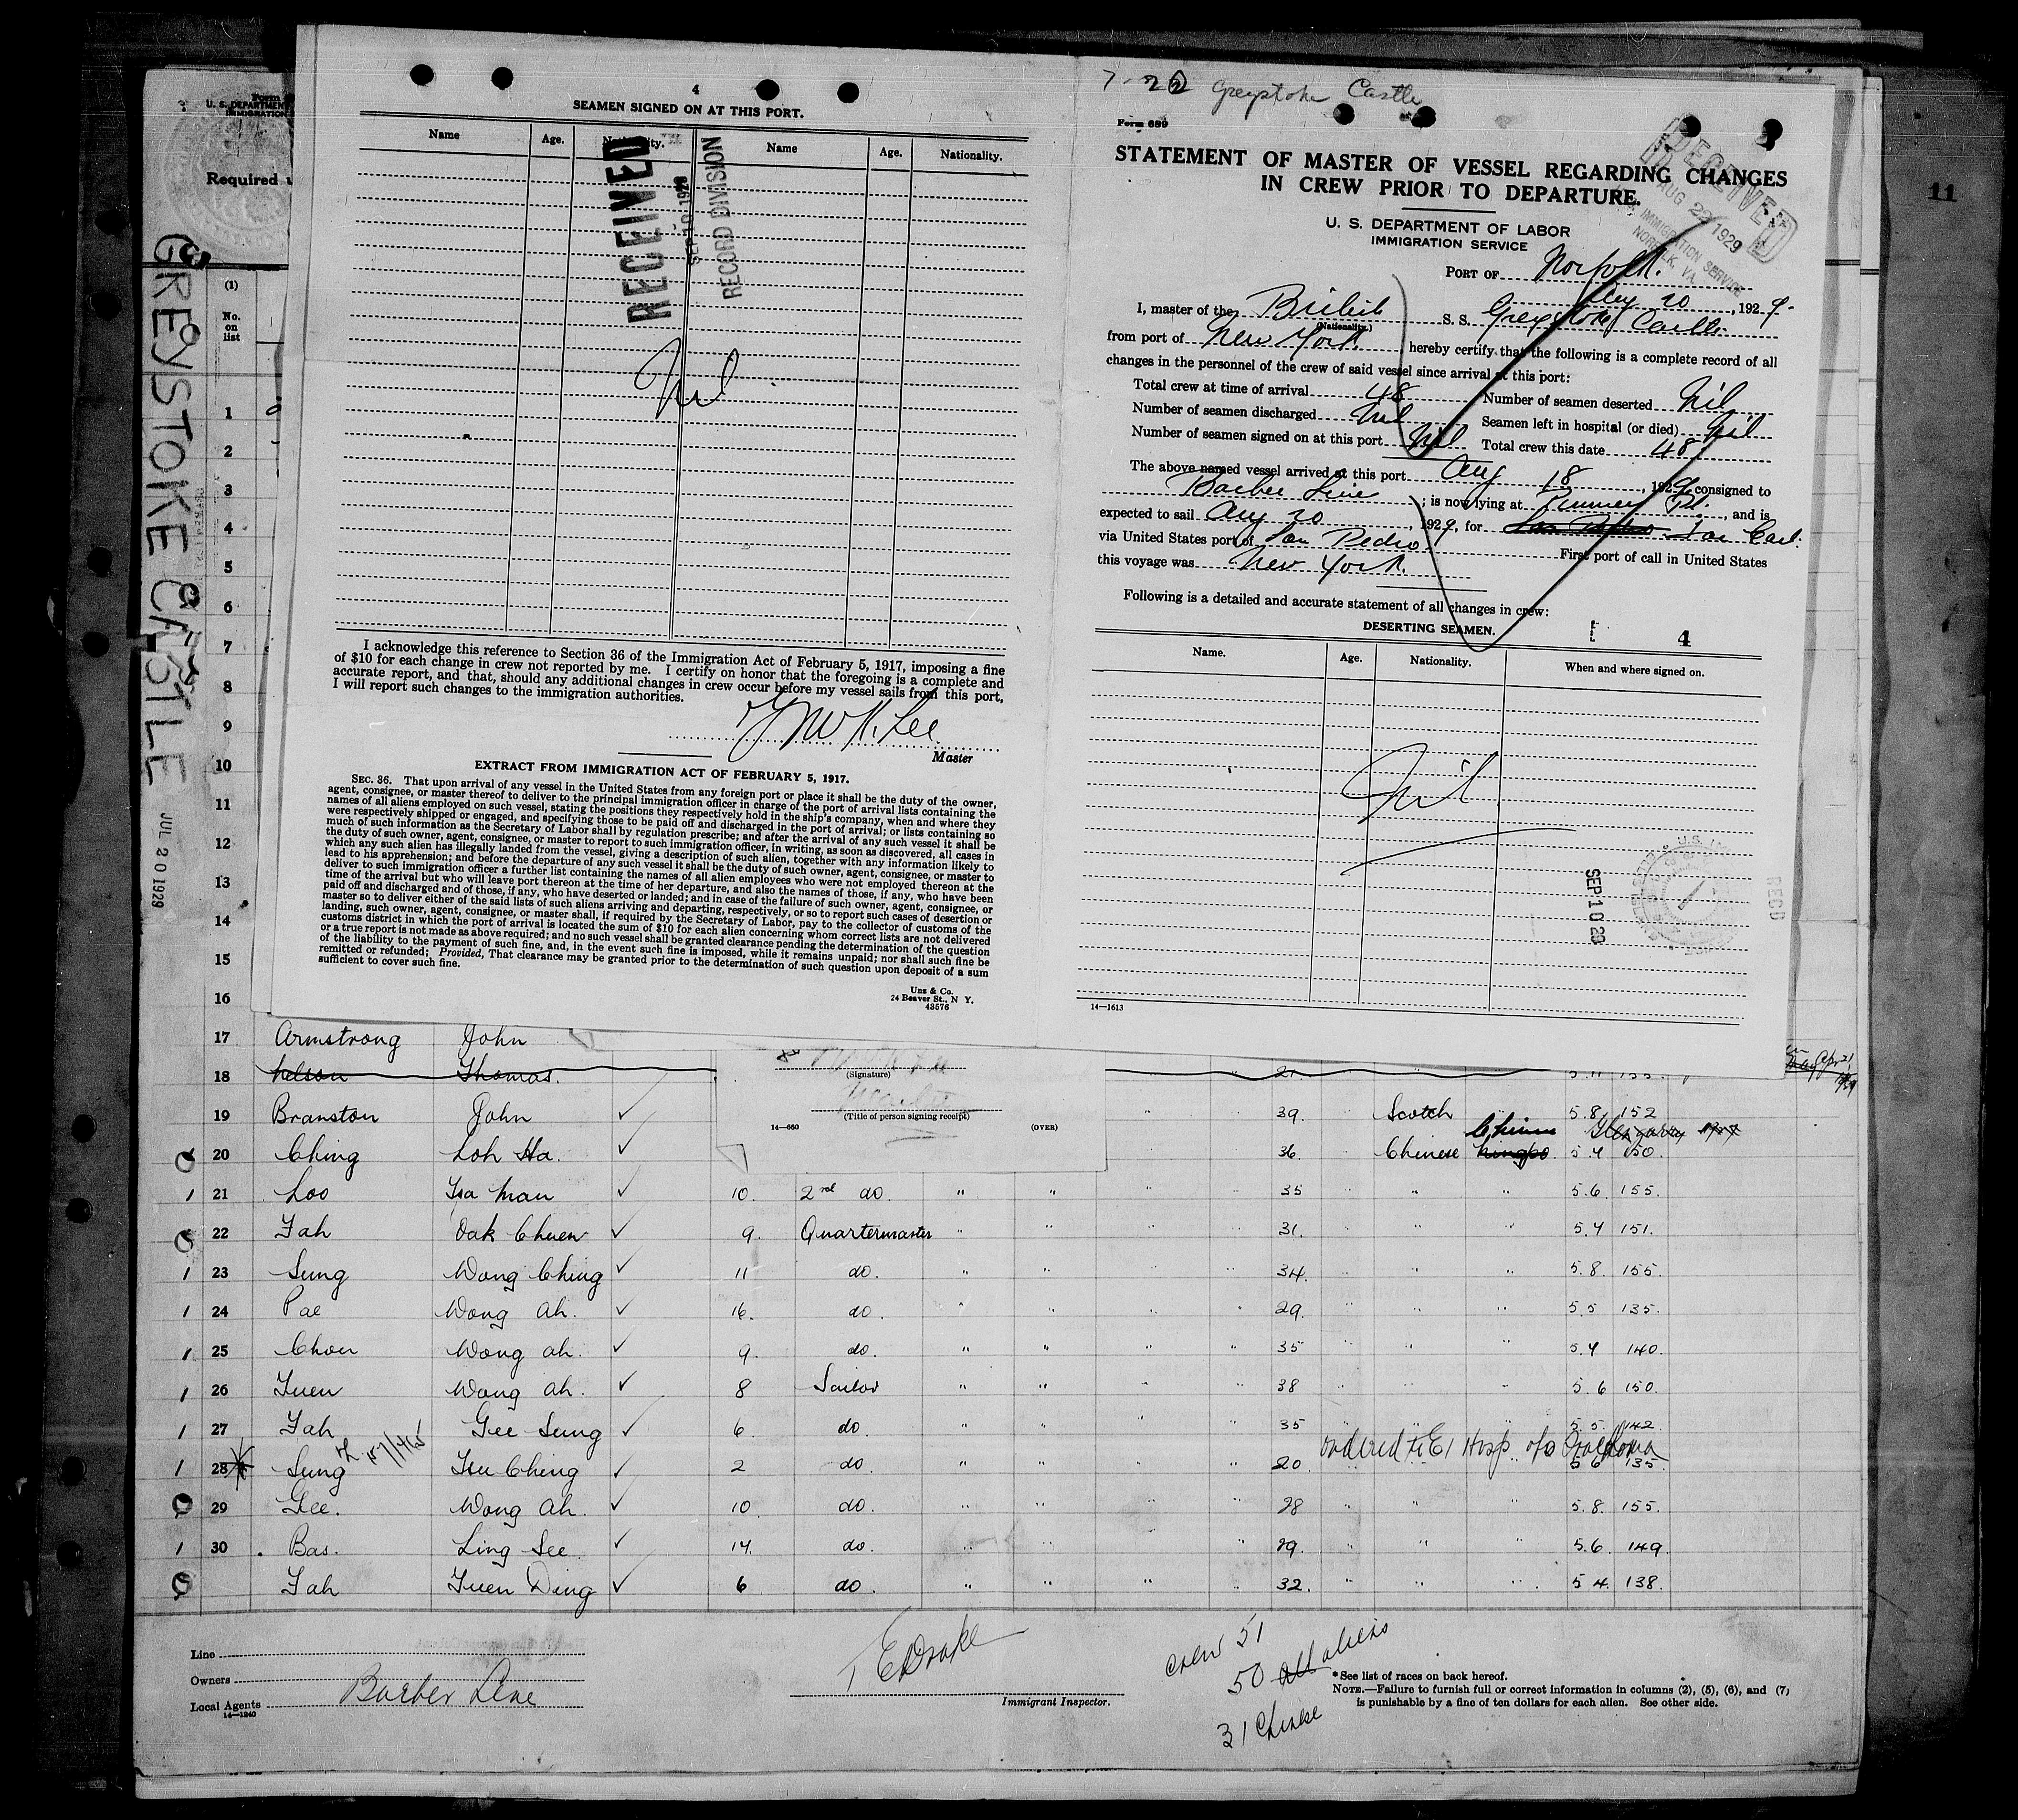 11
Form
U. S. DEPARTMENT
IMMIGRATION
Required
GREYSTOKE CASTLE
JUL 20 1929
(1)
No.
on
list
1
2
3
4
5
6
7
8
9
10
11
12
13
14
15
16
4
SEAMEN SIGNED ON AT THIS PORT.
Name Age. Nationality. Name Age. Nationality.
RECEIVED
SEP 10 1929
RECORD DIVISION
Nil
I acknowledge this reference to Section 36 of the Immigration Act of February 5, 1917, imposing a fine
of $10 for each change in crew not reported by me. I certify on honor that the foregoing is a complete and
accurate report, and that, should any additional changes in crew occur before my vessel sails from this port,
I will report such changes to the immigration authorities.
Lee
Master
EXTRACT FROM IMMIGRATION ACT OF FEBRUARY 5, 1917.
SEC. 36. That upon arrival of any vessel in the United States from any foreign port or place it shall be the duty of the owner,
agent, consignee, or master thereof to deliver to the principal immigration officer in charge of the port of arrival lists containing the
names of all aliens employed on such vessel, stating the positions they respectively hold in the ship's company, when and where they
were respectively shipped or engaged, and specifying those to be paid off and discharged in the port of arrival; or lists containing so
much of such information as the Secretary of Labor shall by regulation prescribe; and after the arrival of any such vessel it shall be
the duty of such owner, agent, consignee, or master to report to such immigration officer, in writing, as soon as discovered, all cases in
which any such alien has illegally landed from the vessel, giving a description of such alien, together with any information likely to
lead to his apprehension; and before the departure of any such vessel it shall be the duty of such owner, agent, consignee, or master to
deliver to such immigration officer a further list containing the names of all alien employees who were not employed thereon at the
time of the arrival but who will leave port thereon at the time of her departure, and also the names of those, if any, who have been
paid off and discharged and of those, if any, who have deserted or landed; and in case of the failure of such owner, agent, consignee, or
master so to deliver either of the said lists of such aliens arriving and departing, respectively, or so to report such cases of desertion or
landing, such owner, agent, consignee, or master shall, if required by the Secretary of Labor, pay to the collector of customs of the
customs district in which the port of arrival is located the sum of $10 for each alien concerning whom correct lists are not delivered
or a true report is not made as above required; and no such vessel shall be granted clearance pending the determination of the question
of the liability to the payment of such fine, and, in the event such fine is imposed, while it remains unpaid; nor shall such fine be
remitted or refunded; Provided, That clearance may be granted prior to the determination of such question upon deposit of a sum
sufficient to cover such fine.
Unz & Co.
24 Beaver St., N Y.
43576
7-22 Greystoke Castle
Form 689
STATEMENT OF MASTER OF VESSEL REGARDING CHANGES
IN CREW PRIOR TO DEPARTURE.
U. S. DEPARTMENT OF LABOR
IMMIGRATION SERVICE
RECEIVED
AUG 22 1929
IMMIGRATION SERVICE
NORFOLK, VA.
PORT OF Norfolk.
Aug 20, 1929.
I, master of the British S. S. Greystoke Castle
(Nationality.)
from port of New York. hereby certify that the following is a complete record of all
changes in the personnel of the crew of said vessel since arrival at this port:
Total crew at time of arrival 48 Number of seamen deserted Nil
Number of seamen discharged Nil Seamen left in hospital (or died) Nil
Number of seamen signed on at this port Nil Total crew this date 48
The above named vessel arrived at this port Aug 18, 1929, consigned to
Barber Line; is now lying at Pinners Pt., and is
expected to sail Aug 20, 1929, for San Pedro
via United States port of San Pedro First port of call in United States
this voyage was New York.
Following is a detailed and accurate statement of all changes in crew:
DESERTING SEAMEN. 4
Name. Age. Nationality. When and where signed on.
Nil
SEP 10 29
RECD
14—1613
17 Armstrong John
18 Nelson Thomas.
(Signature)
(Title of person signing receipt)
14—660 (OVER)
19 Branston John ✓ " " 39. Scotch 5.8. 152
20 Ching Loh Ha. ✓ 36. Chinese Chinese Ningpo 5.4 150.
1 21 Loo Tsa Man ✓ 10. 2nd do. " " " " 35 " " 5.6. 155.
22 Fah Oak Chuen ✓ 9. Quartermaster " " " " 31. " " 5.4 151.
1 23 Sung Wong Ching ✓ 11 do. " " " " 34. " " 5.8. 155.
1 24 Pae Wong Ah. ✓ 16. do. " " " " 29. " " 5.5 135.
1 25 Chou Wong Ah. ✓ 9. do. " " " " 35 " " 5.4 140.
1 26 Yuen Wong Ah. ✓ 8 Sailor " " " " 38 " " 5.6 150.
1 27 Fah Gee Sung ✓ 6. do. " " " " 35 " " 5.5 142.
ordered to EI Hosp.
1 28 Sung Tsu Ching ✓ 2 do. " " " " 20. " " 5 6 135.
29 Gee. Wong Ah. ✓ 10. do. " " " " 28 " " 5.8. 155.
1 30 Bas. Ling See ✓ 14. do. " " " " 29. " " 5.6. 149.
Fah Yuen Ding ✓ 6 do. " " " " 32. " " 5 4. 138.
Line
Owners
Local Agents Barber Line
14—1240
T E Drake
Immigrant Inspector.
Crew 51
50 all aliens
31 Chinese
*See list of races on back hereof.
NOTE.—Failure to furnish full or correct information in columns (2), (5), (6), and (7)
is punishable by a fine of ten dollars for each alien. See other side.